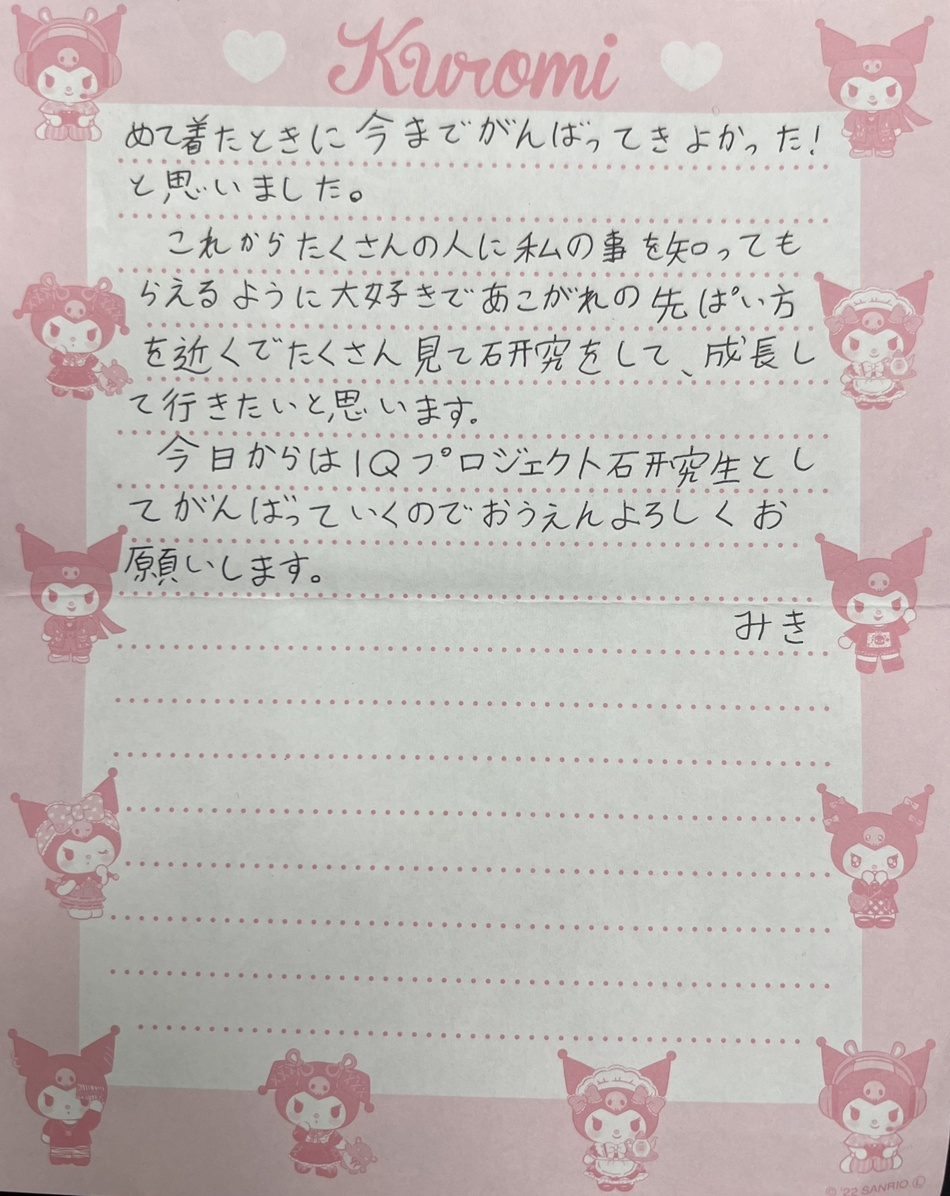 Kuromi
めて着たときに今までがんばってきよかった!
と思いました。
これからたくさんの人に私の事を知っても
らえるように大好きであこがれの先ぱい方
を近くでたくさん見て研究をして、成長し
て行きたいと思います。
今日からはIQプロジェクト研究生とし
てがんばっていくのでおうえんよろしくお
願いします。
みき
© '22 SANRIO Ⓛ